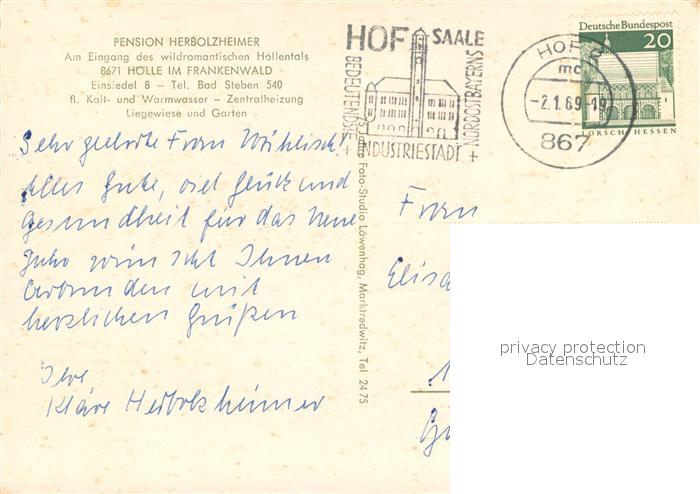 PENSION HERBOLZHEIMER
Am Eingang des wildromantischen Höllentals
8671 HÖLLE IM FRANKENWALD
Einsiedel 8 – Tel. Bad Steben 540
fl. Kalt- und Warmwasser – Zentralheizung
Liegewiese und Garten
Sehr geehrte Frau Wühlisch!
Alles Gute, viel Glück und
Gesundheit für das neue
Jahr wünscht Ihnen
verbunden mit
herzlichen Grüßen
Ihre
Kläre Herbolzheimer
Foto-Studio Löwenhag, Marktredwitz, Tel 2475
HOF SAALE
BEDEUTENDSTE
INDUSTRIESTADT
NORDOSTBAYERNS
HOF
mc
-2.1.69-19
867
Deutsche Bundespost
20
LORSCH/HESSEN
Frau
Elisa
privacy protection
Datenschutz